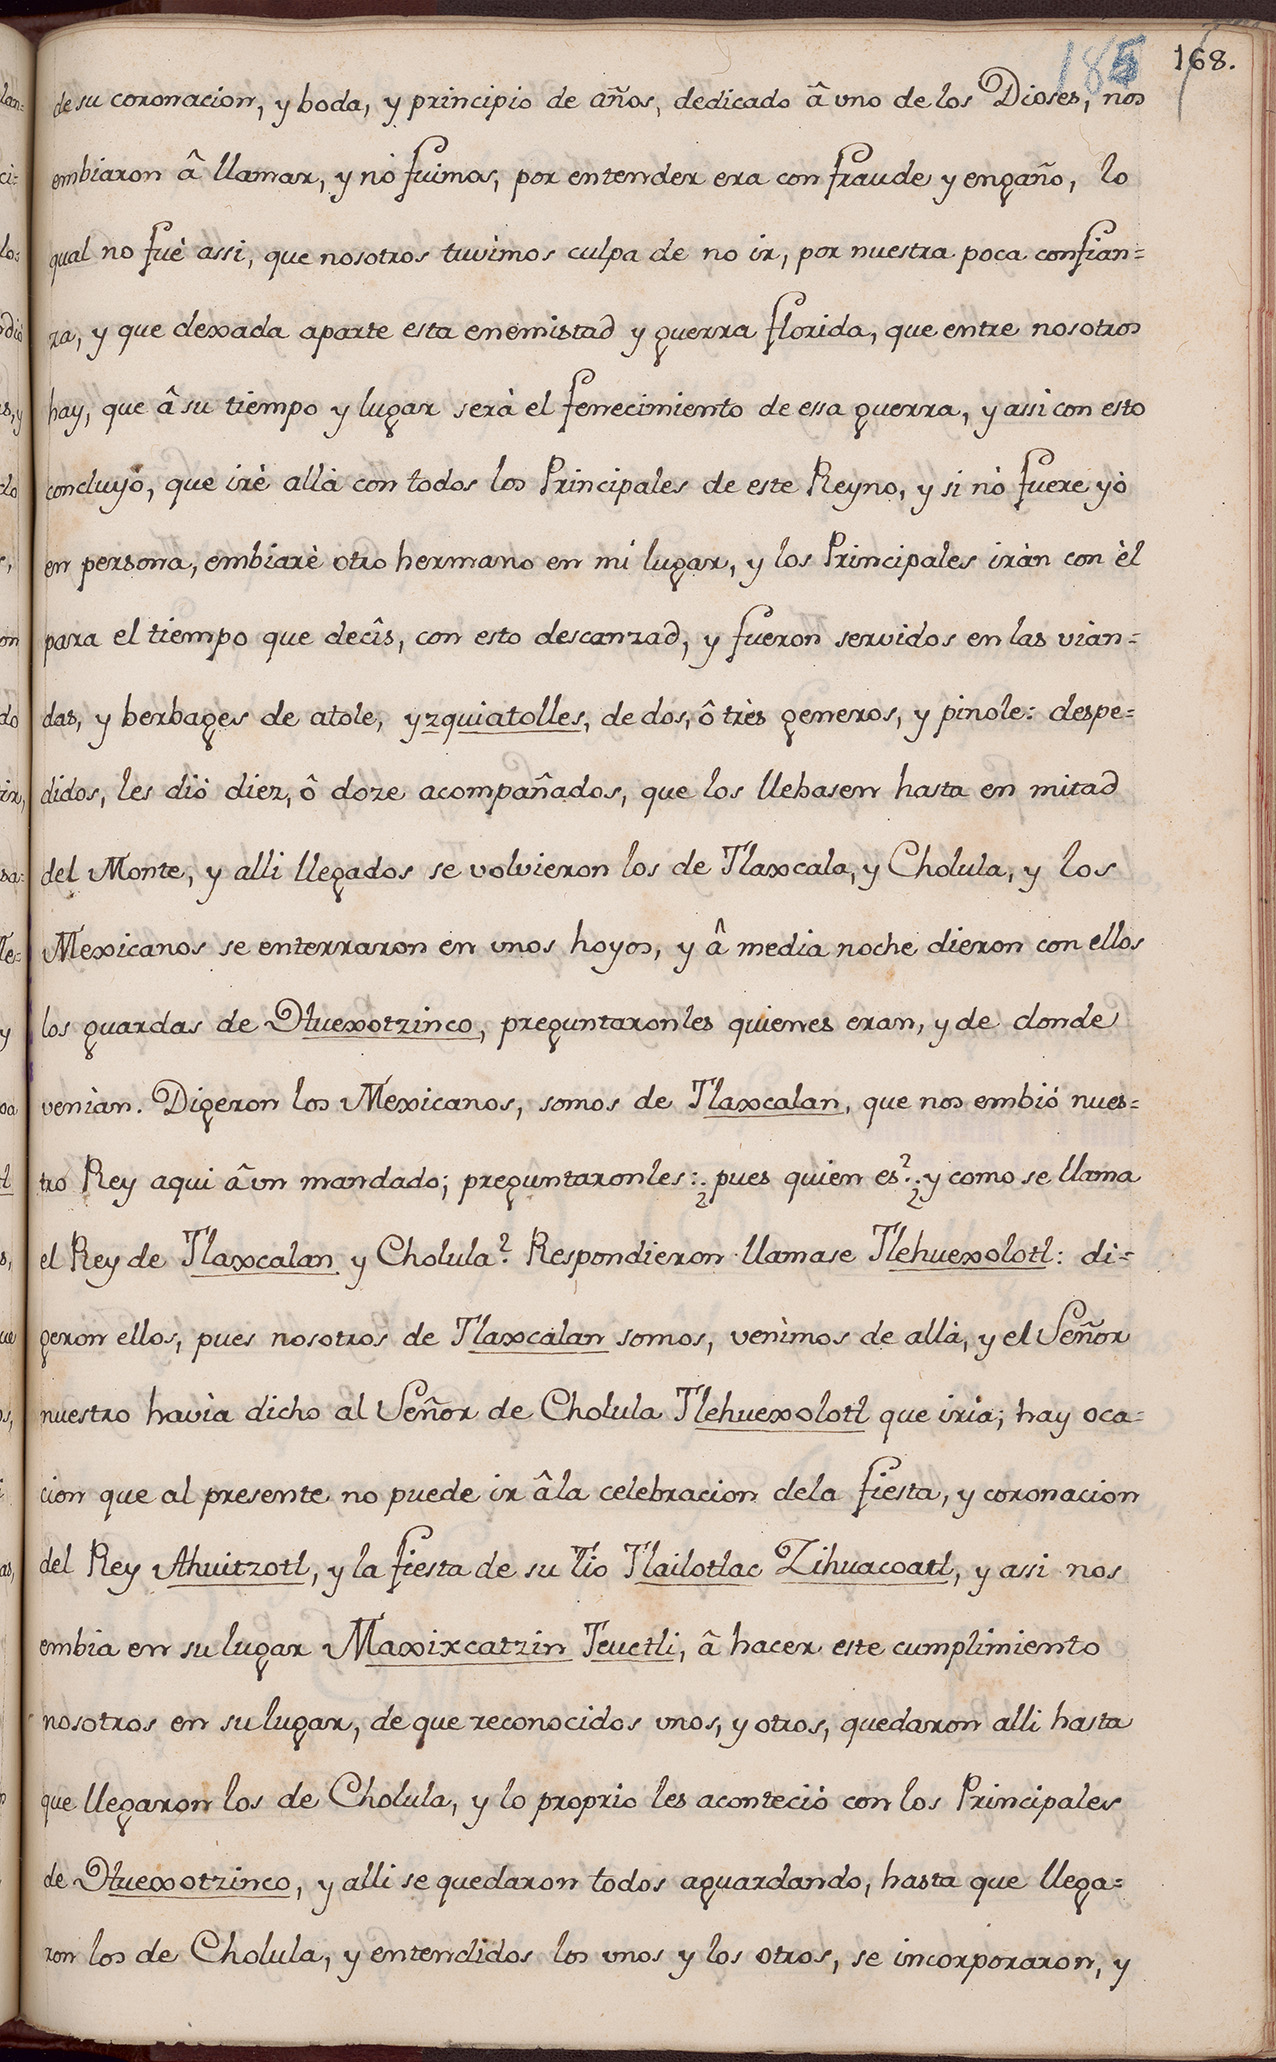 185 168.
de su coronacion, y boda, y principio de años, dedicado â vno de los Dioses, nos
embiaron â llamar, y nò fuimos, por entender era con fraude y engaño, lo
qual no fuè assi, que nosotros tuvimos culpa de no ir, por nuestra poca confian=
za, y que dexada aparte esta enemistad y guerra florida, que entre nosotros
hay, que â su tiempo y lugar serà el fenecimiento de essa guerra, y assi con esto
concluyo, que irè allà con todos los Principales de este Reyno, y si nò fuere yò
en persona, embiarè otro hermano en mi lugar, y los Principales iràn con èl
para el tiempo que decîs, con esto descanzad, y fueron servidos en las vian=
das, y berbages de atole, yzquiatolles, de dos, ô très generos, y pinole: despe=
didos, les diò diez, ô doze acompañados, que los llebasen hasta en mitad
del Monte, y alli llegados se volvieron los de Tlaxcala, y Cholula, y los
Mexicanos se enterraron en vnos hoyos, y â media noche dieron con ellos
los guardas de Huexotzinco, preguntaronles quienes eran, y de donde
venìan. Digeron los Mexicanos, somos de Tlaxcalan, que nos embiò nues=
tro Rey aqui â vn mandado; preguntaronles: ¿pues quien es? ¿y como se llama
el Rey de Tlaxcalan y Cholula? Respondieron llamase Tlehuexolotl: di=
geron ellos, pues nosotros de Tlaxcalan somos, venìmos de allà, y el Señor
nuestro havìa dicho al Señor de Cholula Tlehuexolotl que irìa; hay oca=
cion que al presente no puede ir â la celebracion dela fiesta, y coronacion
del Rey Ahuitzotl, y la fiesta de su Tio Tlailotlac Zihuacoatl, y assi nos
embia en su lugar Maxixcatzin Teuctli, â hacer este cumplimiento
nosotros en su lugar, de que reconocidos vnos, y otros, quedaron alli hasta
que llegaron los de Cholula, y lo proprio les aconteciò con los Principales
de Huexotzinco, y alli se quedaron todos aguardando, hasta que llega=
ron los de Cholula, y entendidos los vnos y los otros, se incorporaron, y